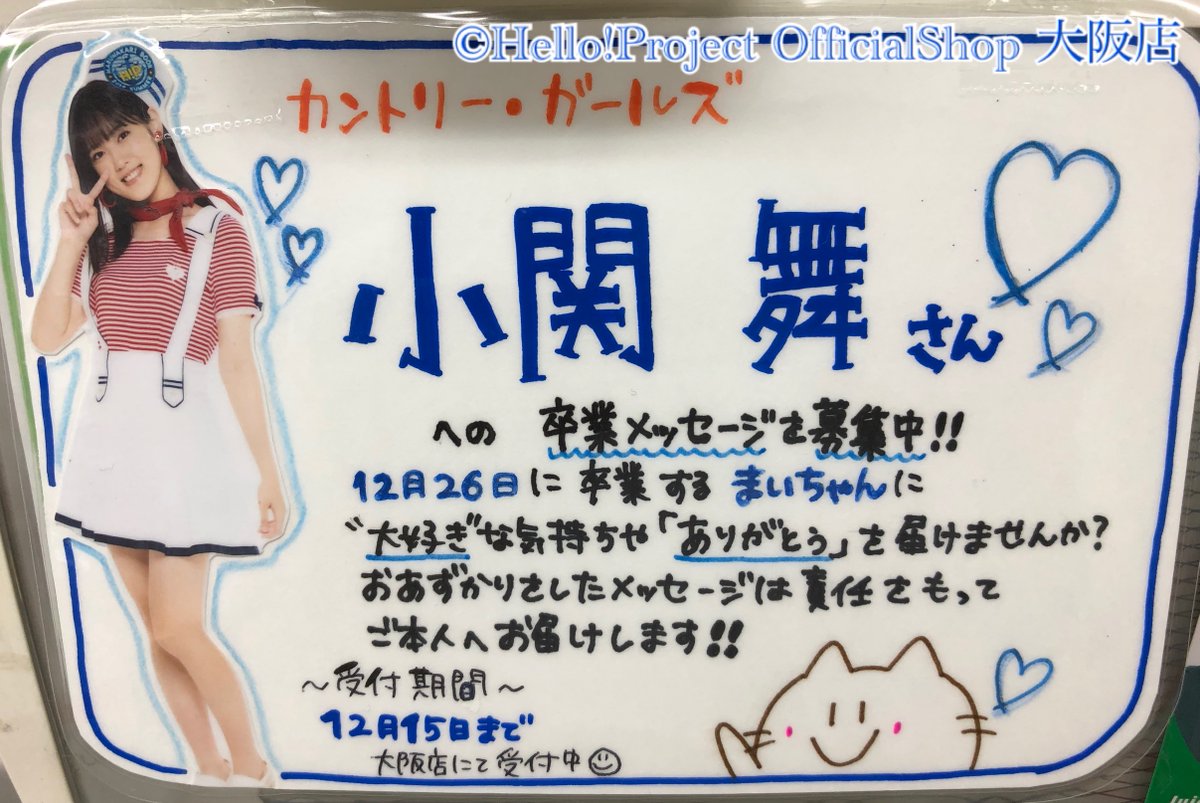 ©Hello!Project OfficialShop 大阪店
カントリー・ガールズ
小関 舞さん
への 卒業メッセージを募集中!!
12月26日に卒業するまいちゃんに
"大好き"な気持ちや「ありがとう」を届けませんか?
おあずかりをしたメッセージは責任をもって
ご本人へお届けします!!
~受付期間~
12月15日まで
大阪店にて受付中